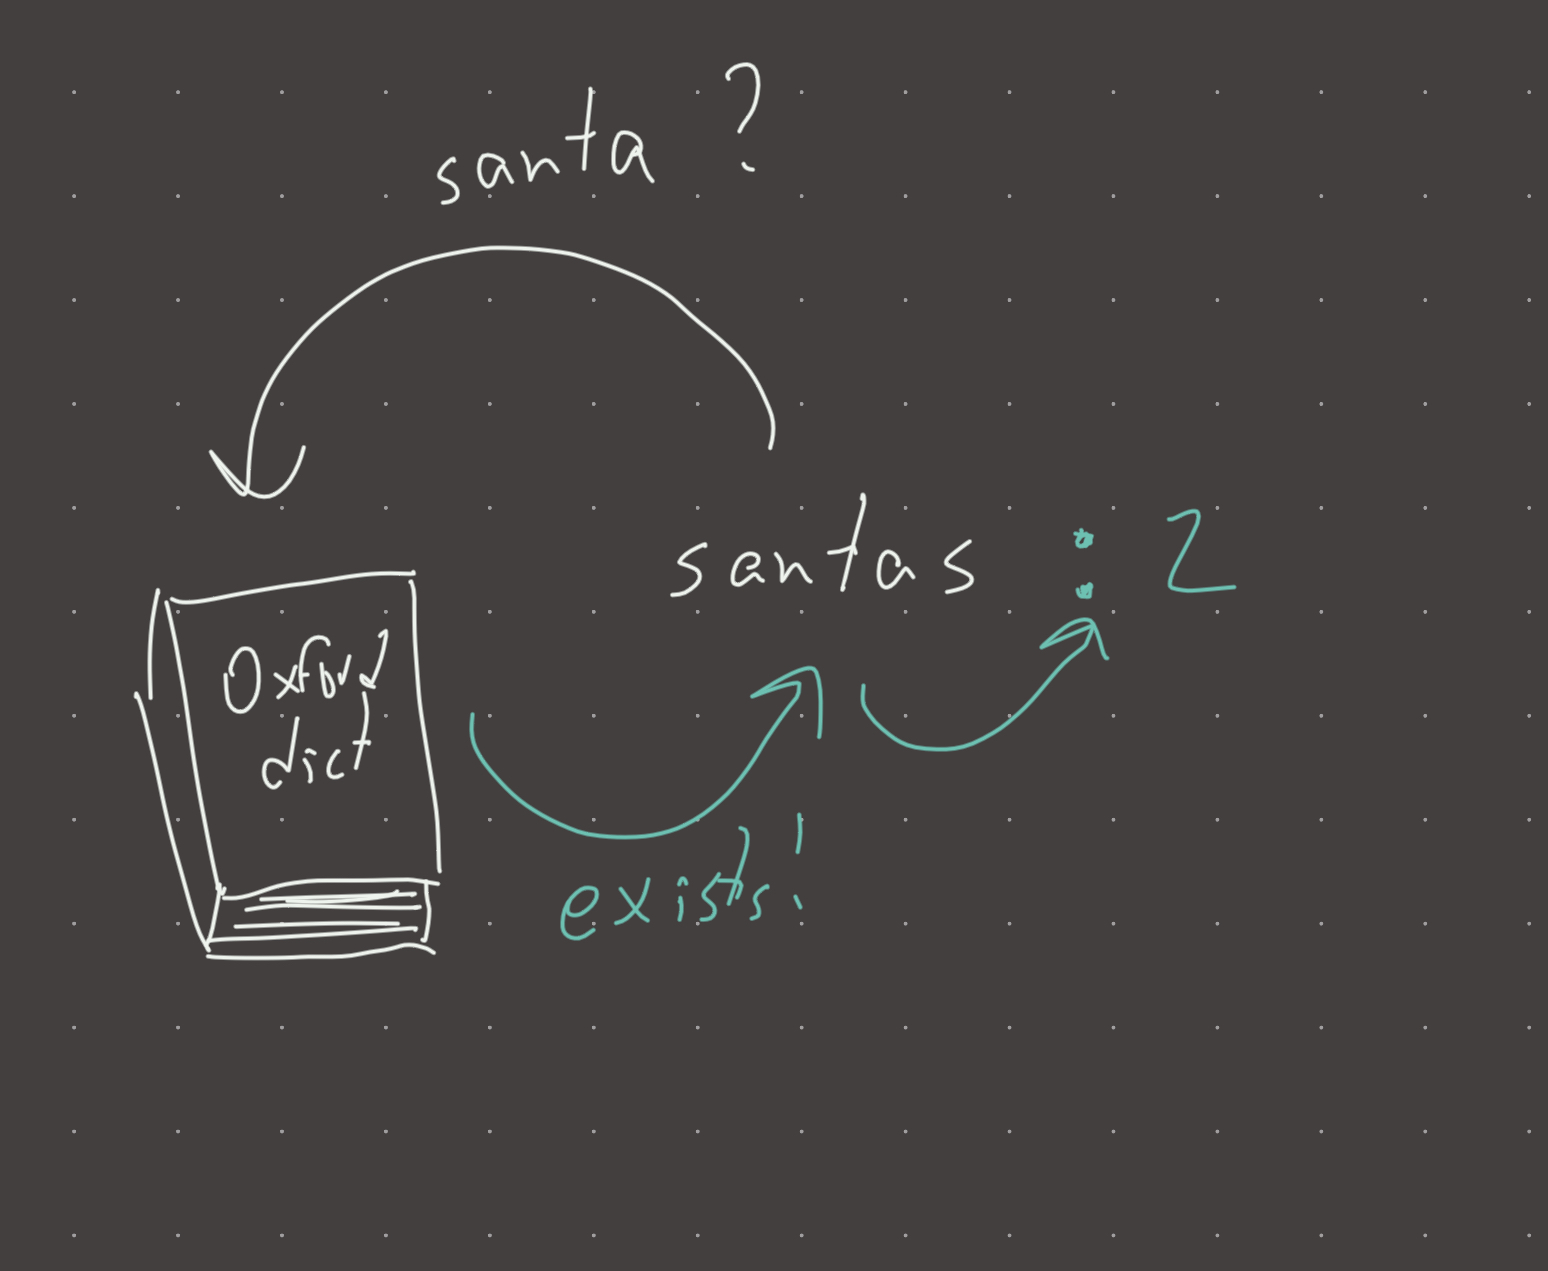 santa ?
santas : 2
Oxford
dict
exists!